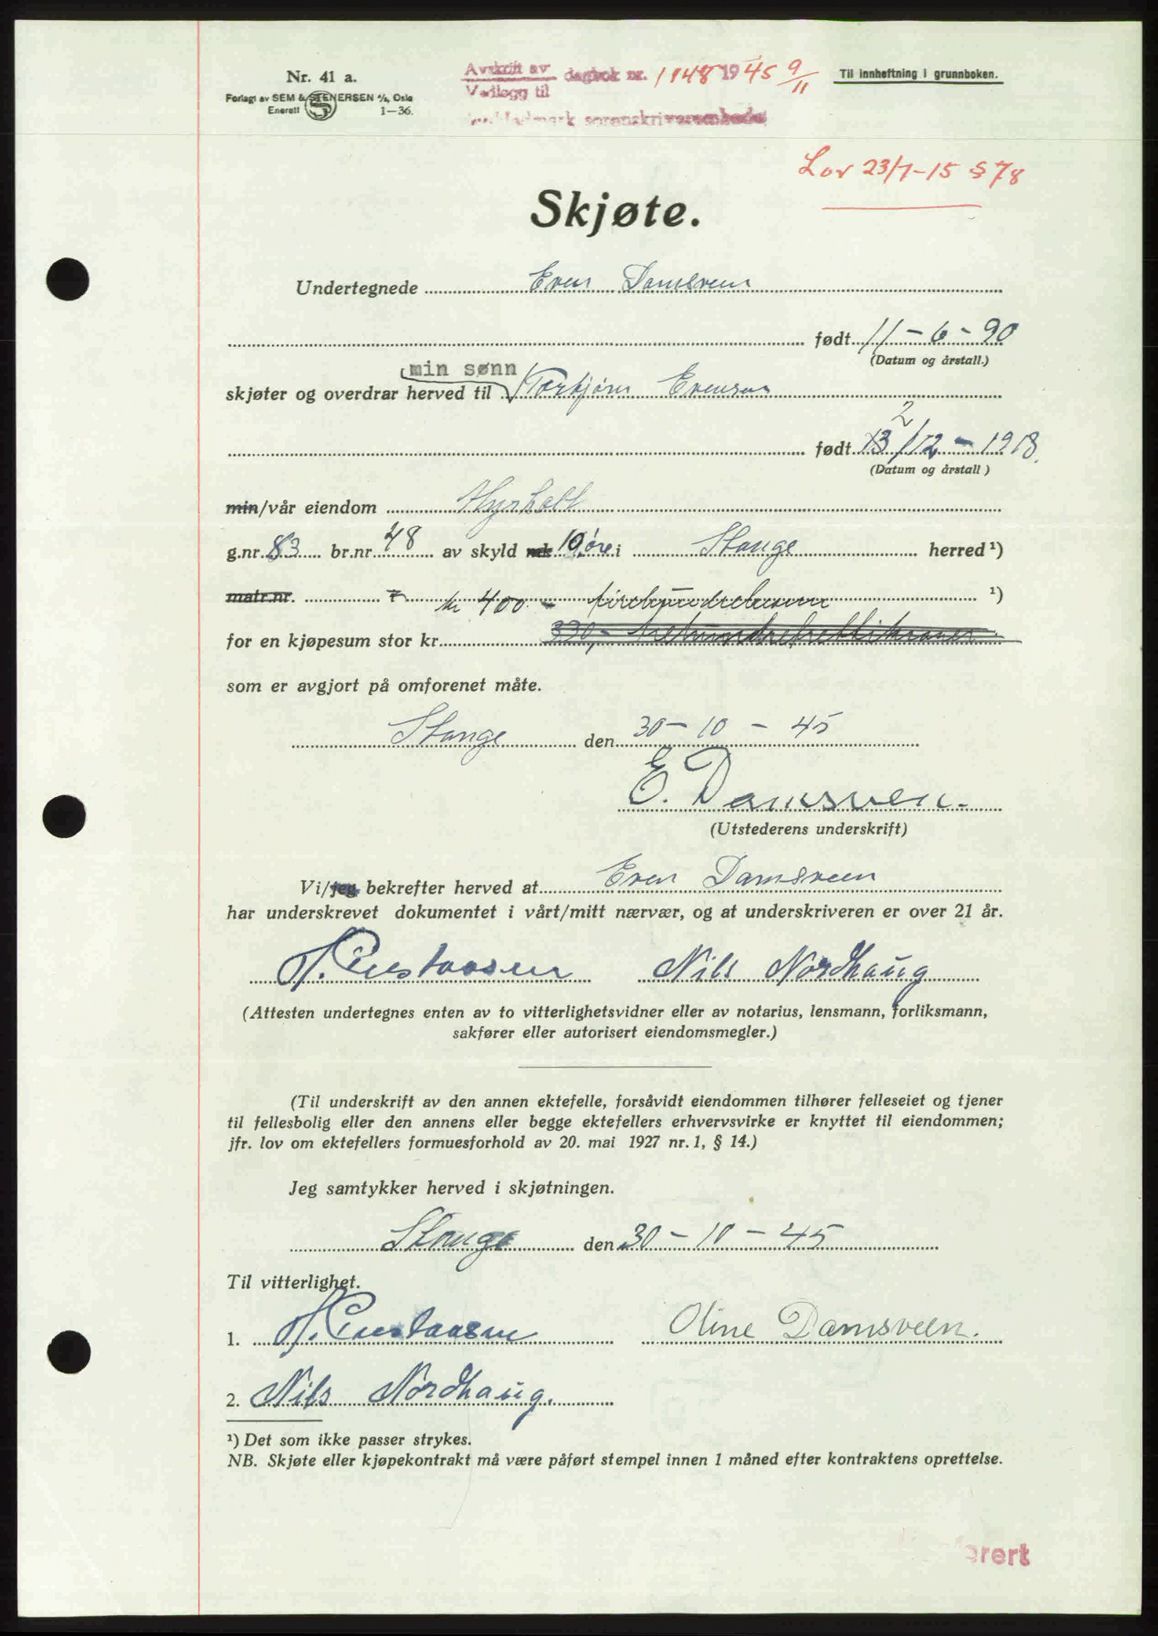 Nr. 41 a.
Forlagt av SEM & STENERSEN A/S, Oslo
Enerett 1—36.
Avskrift av dagbok nr. 1148 1945 9/11
Vedlegg til
sorenskriverembede
Til innheftning i grunnboken.
Lov 23/7-15 § 78
Skjøte.
Undertegnede Even Damsveen
født 11-6-90
(Datum og årstall.)
min sønn
skjøter og overdrar herved til Torbjørn Evensen
født 13/12-1918.
2
(Datum og årstall)
min/vår eiendom
g.nr. 83 br.nr. 48 av skyld mrk 10 øre i Stange herred ¹)
matr.nr. ¹)
kr 400 - firehundrekroner
for en kjøpesum stor kr. 330,- trehundretrettikroner
som er avgjort på omforenet måte.
Stange den 30-10-45
E. Damsveen.
(Utstederens underskrift)
Vi/jeg bekrefter herved at Even Damsveen
har underskrevet dokumentet i vårt/mitt nærvær, og at underskriveren er over 21 år.
H. Gustavsen Nils Nordhaug
(Attesten undertegnes enten av to vitterlighetsvidner eller av notarius, lensmann, forliksmann,
sakfører eller autorisert eiendomsmegler.)
(Til underskrift av den annen ektefelle, forsåvidt eiendommen tilhører felleseiet og tjener
til fellesbolig eller den annens eller begge ektefellers erhvervsvirke er knyttet til eiendommen;
jfr. lov om ektefellers formuesforhold av 20. mai 1927 nr. 1, § 14.)
Jeg samtykker herved i skjøtningen.
Stange den 30-10-45
Til vitterlighet.
1. H. Gustavsen Oline Damsveen.
2. Nils Nordhaug.
¹) Det som ikke passer strykes.
NB. Skjøte eller kjøpekontrakt må være påført stempel innen 1 måned efter kontraktens oprettelse.